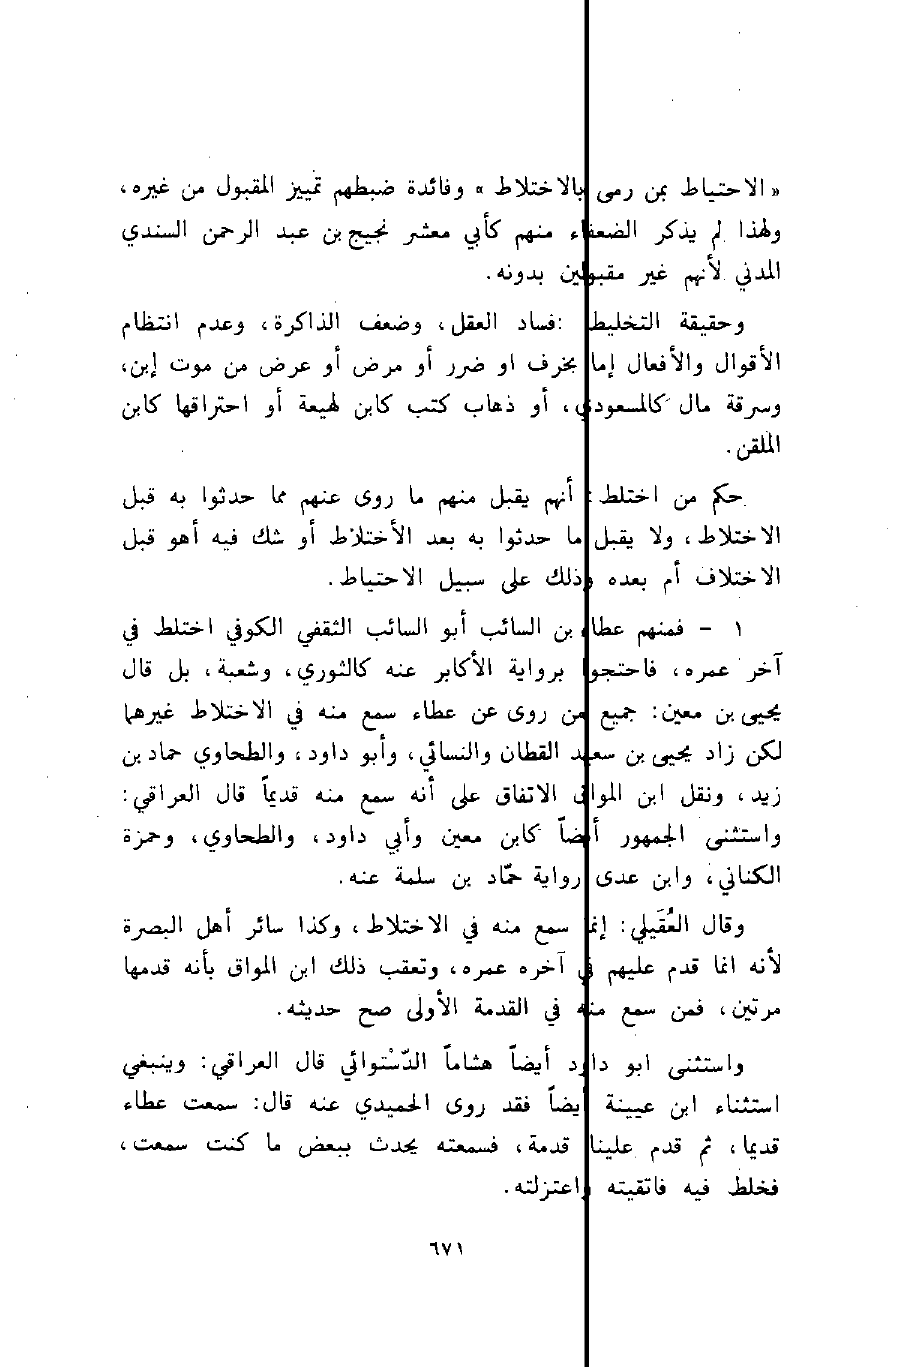 « الاحتياط بمن رمى بالاختلاط » وفائدة ضبطهم تمييز المقبول من غيره ،
ولهذا لم يذكر الضعفاء منهم كأبي معشر نجيح بن عبد الرحمن السندي
المدني لأنهم غير مقبولين بدونه .
وحقيقة التخليط : فساد العقل ، وضعف الذاكرة ، وعدم انتظام
الأقوال والأفعال إما بخرف او ضرر أو مرض أو عرض من موت إبن ،
وسرقة مال كالمسعودي ، أو ذهاب كتب كابن لهيعة أو احتراقها كابن
الملقن .
حكم من اختلط : أنهم يقبل منهم ما روى عنهم مما حدثوا به قبل
الاختلاط ، ولا يقبل ما حدثوا به بعد الأختلاط أو شك فيه أهو قبل
الاختلاف أم بعده وذلك على سبيل الاحتياط .
١ - فمنهم عطاء بن السائب أبو السائب الثقفي الكوفي اختلط في
آخر عمره ، فاحتجوا برواية الأكابر عنه كالثوري ، وشعبة ، بل قال
يحيى بن معين : جميع من روى عن عطاء سمع منه في الاختلاط غيرهما
لكن زاد يحيى بن سعيد القطان والنسائي ، وأبو داود ، والطحاوي حماد بن
زيد ، ونقل ابن المواق الاتفاق على أنه سمع منه قديماً قال العراقي :
واستثنى الجمهور أيضاً كابن معين وأبي داود ، والطحاوي ، وحمزة
الكناني ، وابن عدى رواية حمّاد بن سلمة عنه .
وقال العُقَيلي : إنما سمع منه في الاختلاط ، وكذا سائر أهل البصرة
لأنه انما قدم عليهم في آخره عمره ، وتعقب ذلك ابن المواق بأنه قدمها
مرتين ، فمن سمع منه في القدمة الأولى صح حديثه .
واستثنى ابو داود أيضاً هشاماً الدّسْتوائي قال العراقي : وينبغي
استثناء ابن عيينة أيضاً فقد روى الحميدي عنه قال : سمعت عطاء
قديما ، ثم قدم علينا قدمة ، فسمعته يحدث ببعض ما كنت سمعت ،
فخلط فيه فاتقيته واعتزلته .
٦٧١